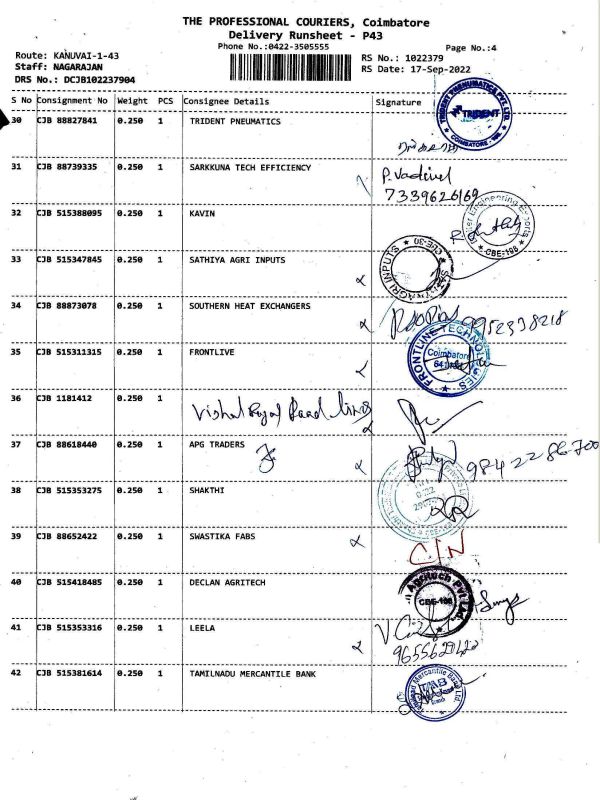 THE PROFESSIONAL COURIERS, Coimbatore
Delivery Runsheet - P43
Phone No.:0422-3505555
Page No.:4
Route: KANUVAI-1-43
Staff: NAGARAJAN
DRS No.: DCJB102237904
RS No.: 1022379
RS Date: 17-Sep-2022
S No Consignment No Weight PCS Consignee Details Signature
30 CJB 88827841 0.250 1 TRIDENT PNEUMATICS
TRIDENT PNEUMATICS PVT LTD.
TRIDENT
COIMBATORE
31 CJB 88739335 0.250 1 SARKKUNA TECH EFFICIENCY P. Vadivel
7339626169
32 CJB 515388095 0.250 1 KAVIN
Engineering Exports
CBE-108
33 CJB 515347845 0.250 1 SATHIYA AGRI INPUTS
SATHIYA AGRI INPUTS CBE-30
34 CJB 88873078 0.250 1 SOUTHERN HEAT EXCHANGERS 9952338218
35 CJB 515311315 0.250 1 FRONTLIVE
FRONTLINE TECHNOLOGIES
Coimbatore
36 CJB 1181412 0.250 1 Vishal Road lines
37 CJB 88618440 0.250 1 APG TRADERS 9842286700
38 CJB 515353275 0.250 1 SHAKTHI
39 CJB 88652422 0.250 1 SWASTIKA FABS C/N
40 CJB 515418485 0.250 1 DECLAN AGRITECH
Agritech Pvt Ltd.
CBE-108
41 CJB 515353316 0.250 1 LEELA
42 CJB 515381614 0.250 1 TAMILNADU MERCANTILE BANK
Tamilnad Mercantile Bank Ltd.